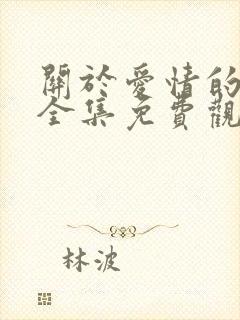 關於愛情的
全集免費觀
林波